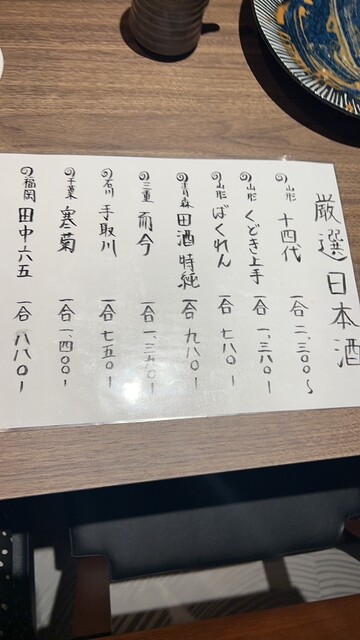 厳選日本酒
の山形 十四代 一合 二、三〇〇〜
の山形 くどき上手 一合 一、三八〇ー
の山形 ばくれん 一合 七八〇ー
の青森 田酒 特純 一合 九八〇ー
の三重 而今 一合 一、三五〇ー
の石川 手取川 一合 七五〇ー
の千葉 寒菊 一合 一、四〇〇ー
の福岡 田中六五 一合 八八〇ー